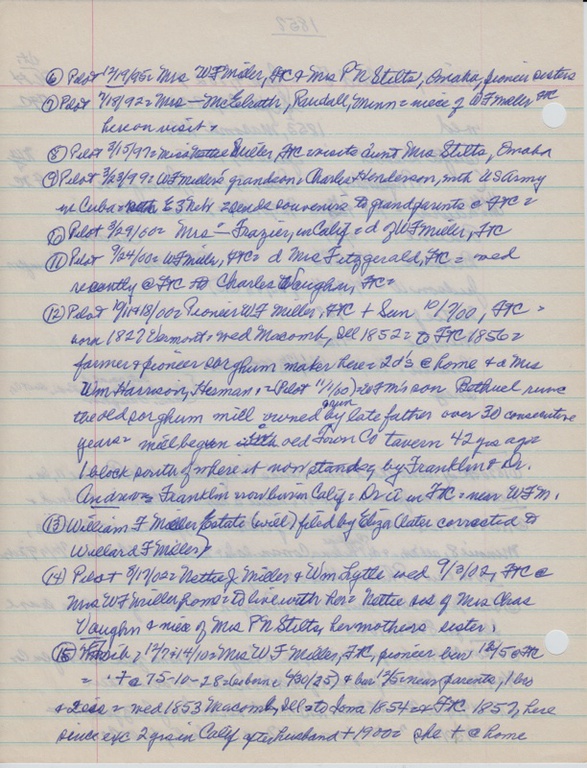 1857
⑥ Pilot 12/19/95= Mrs W F Miller, FC & Mrs P N Stilts, Omaha, pioneer sisters
⑦ Pilot 2/18/92= Mrs — McElrath, Randall, Minn = niece of W F Miller FC
here on visit =
⑧ Pilot 3/15/97= Miss Nettie Miller, FC = visits aunt Mrs Stilts, Omaha
⑨ Pilot 3/23/99= W F Miller's grandson = Charles Henderson, with US Army
in Cuba = E 3 Nebr = sends souvenirs to grandparents @ FC =
⑩ Pilot 3/29/00= Mrs — Frazier, in Calif = d of W F Miller, FC
⑪ Pilot 9/24/00= W F Miller, FC = d Mrs Fitzgerald, FC = wed
recently @ FC to Charles Vaughn, FC =
⑫ Pilot 10/11&18/00= Pioneer W F Miller, FC + Sun 10/7/00, FC =
born 1827 Vermont = wed Macomb, Ill 1852 = to FC 1856 =
farmer & pioneer sorghum maker here = 2 d's @ home & d Mrs
Wm Harrison, Herman, = Pilot 11/1/00) = W F M's son Bethuel runs
the old sorghum mill owned & run by late father over 30 consecutive
years = mill began with old Town Co tavern 42 yrs ago
1 block south of where it now stands, by Franklin & Dr.
Andrews = Franklin now lives in Calif = Dr A in FC = near W F M.
⑬ William F Miller Estate (will) filed by Eliza (later corrected to
Willard F Miller)
⑭ Pilot 9/17/02= Nettie J Miller & Wm Lytle wed 9/3/02, FC @
Mrs W F Miller home = to live with her = Nettie sis of Mrs Chas
Vaughn & niece of Mrs P N Stilts, her mothers sister,
⑮ 12/7&14/10= Mrs W F Miller, FC, pioneer bur 12/5 @ FC
= + @ 75-10-28 = (born 35) & bur 12/5 = near parents, 1 bro
& 2 sis = wed 1853 Macomb, Ill = to Iowa 1854 = FC 1857, here
since exc 2 yrs in Calif after husband + 1900 = she + @ home